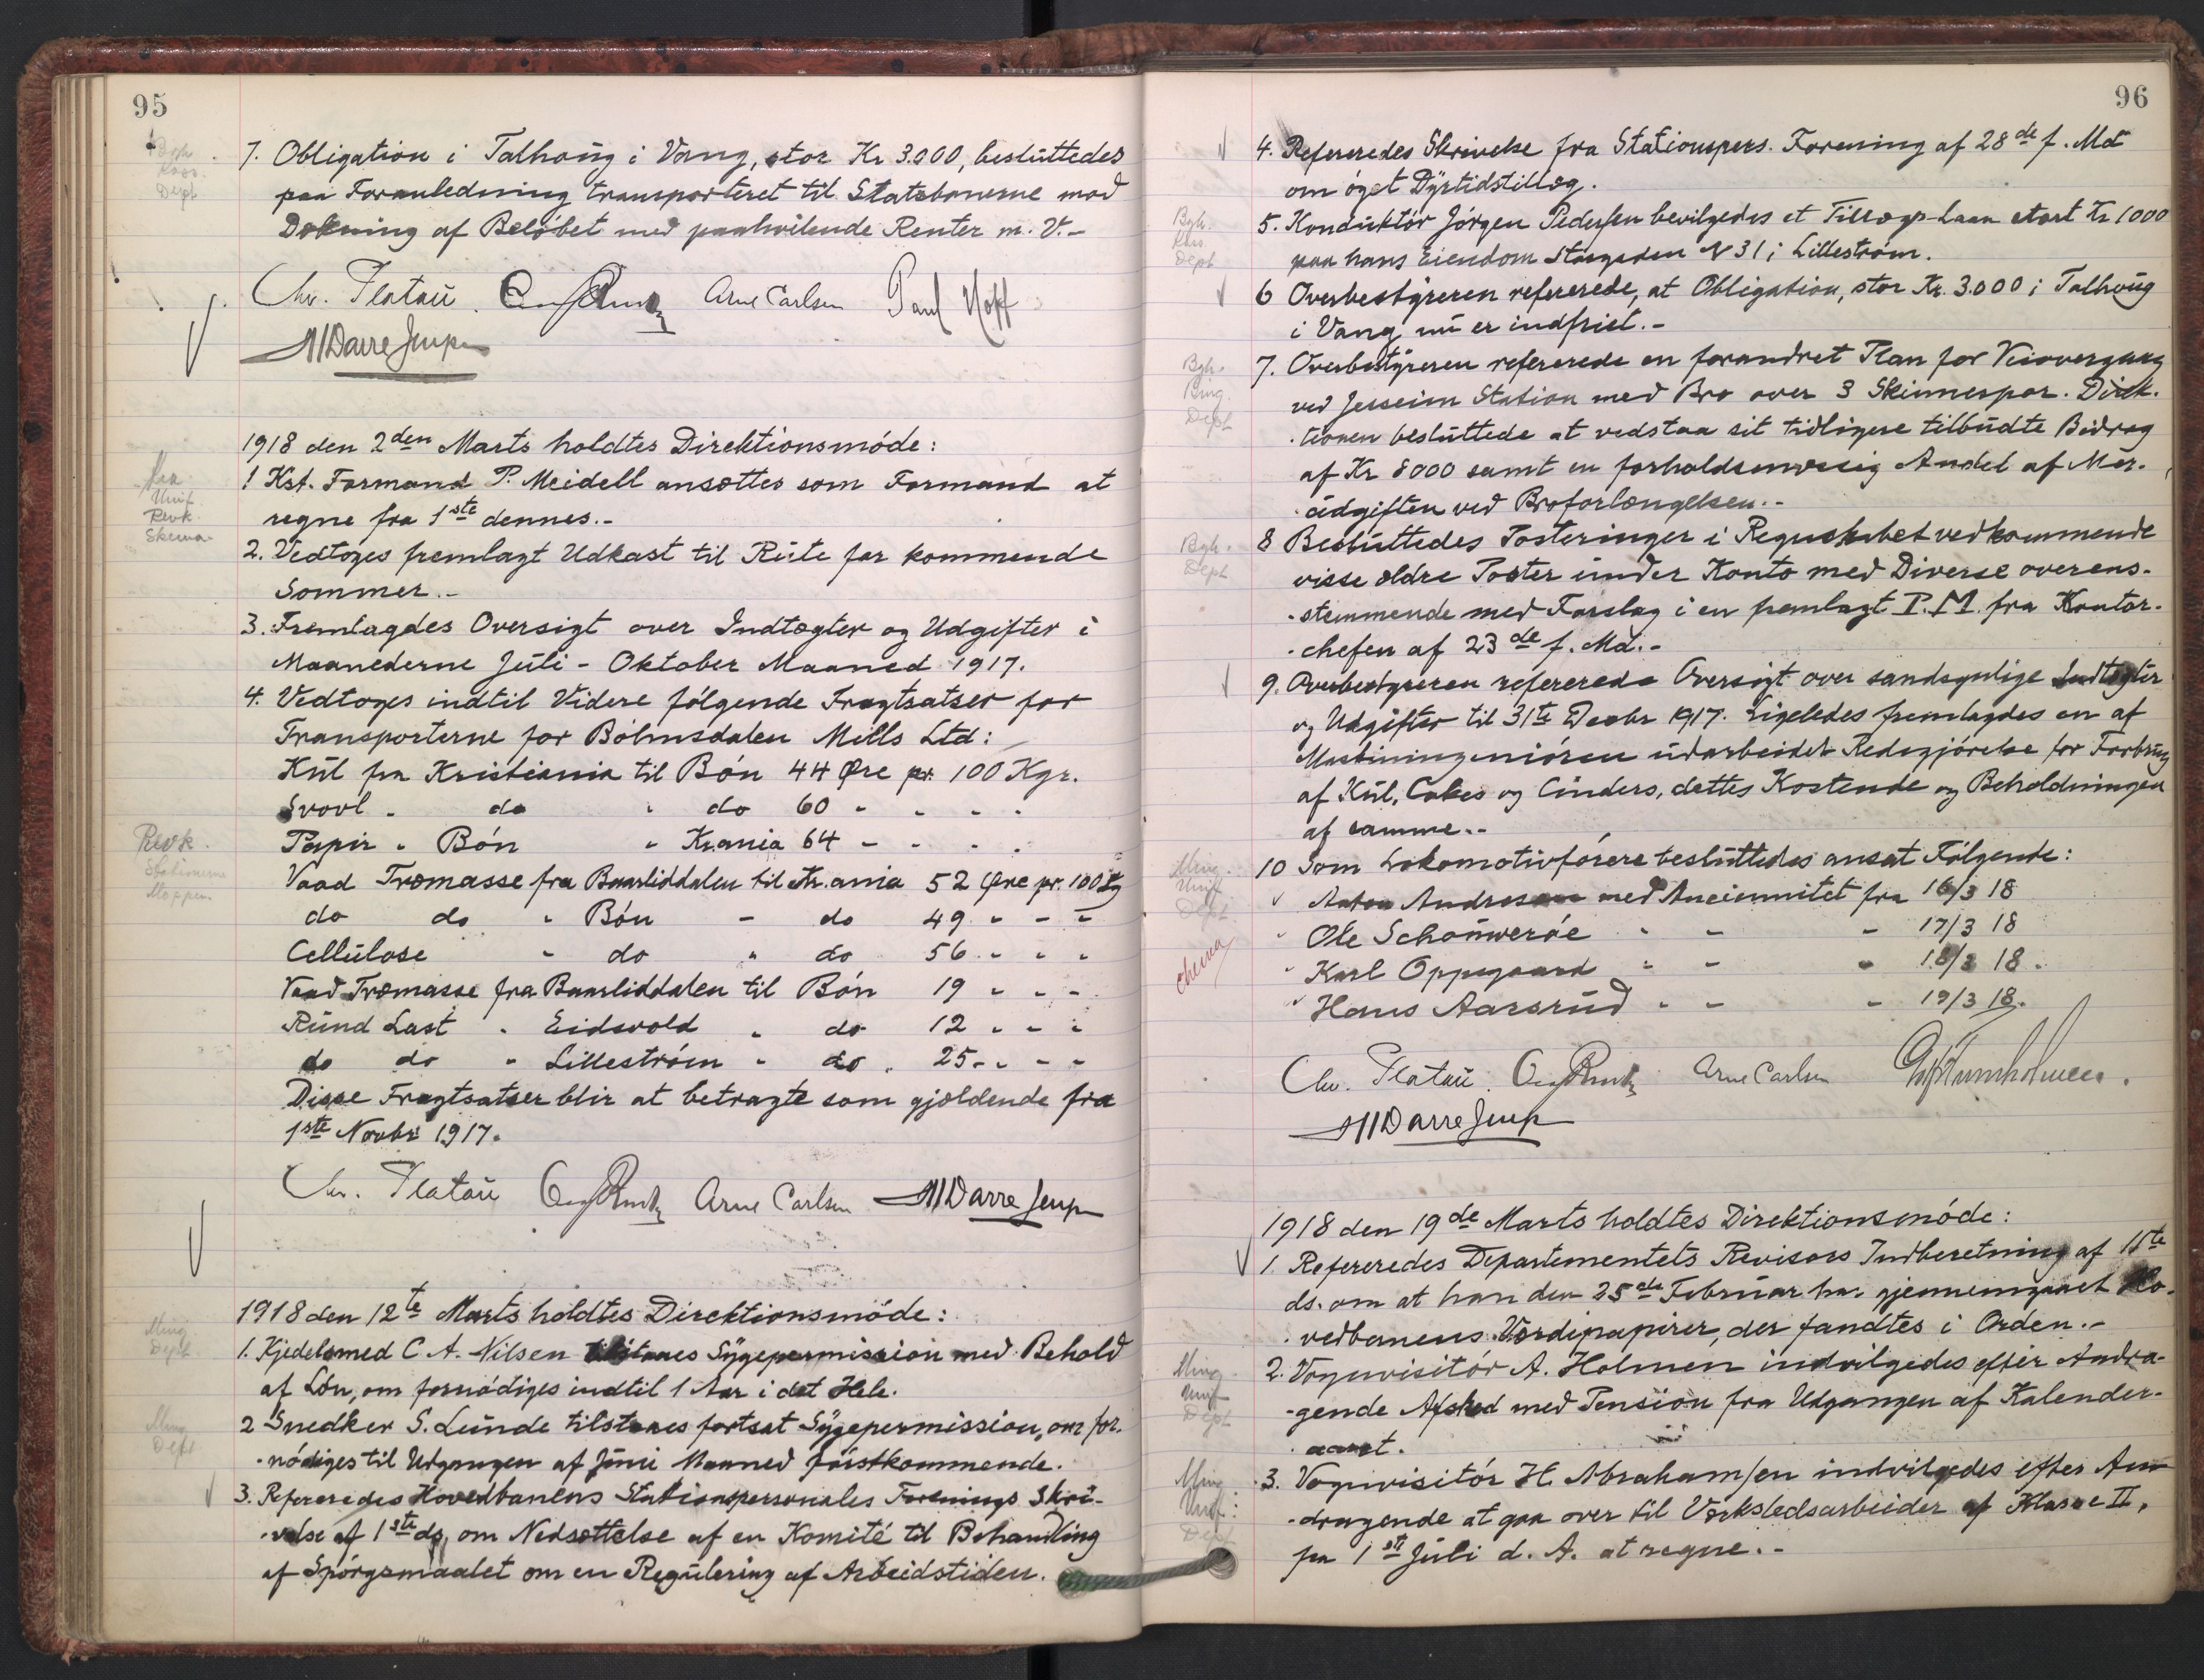 95
7. Obligation i Talhoug i Vang, stor Kr 3.000, besluttedes
paa Foranledning transporteret til Statsbanerne mod
Dekning af Beløbet med paahvilende Renter m. V.-
Chr. Platou Arne Carlsen Paul Hoff
1918 den 2den Marts holdtes Direktionsmöde:
1 Kst. Formand P. Meidell ansættes som Formand at
regne fra 1ste dennes.-
2. Vedtoges fremlagt Udkast til Rute for kommende
Sommer.-
3. Fremlagdes Oversigt over Indtægter og Udgifter i
Maanederne Juli - Oktober Maaned 1917.
4. Vedtoges indtil Videre følgende Fragtsatser for
Transporterne for Böhnsdalen Mills Ltd:
Kul fra Kristiania til Bön 44 Øre pr. 100 Kgr.
Svovl - do " do 60 - - - -
Papir " Bön " Kr.ania 64 - - - -
Vaad Træmasse fra Baarliddalen til Kr.ania 52 Øre pr. 100 Kg
do do " Bön - do 49 " - -
Cellulose " do " do 56 - - -
Vaad Træmasse fra Baarliddalen til Bön 19 - - -
Rund Last " Eidsvold " do 12 - - -
do do " Lilleström " do " 25 - - -
Disse Fragtsatser blir at betragte som gjældende fra
1ste Novbr 1917.
Chr. Platou Arne Carlsen
1918 den 12te Marts holdtes Direktionsmöde:
1. Kjedelsmed C. A. Nilsen tilstaaes Sygepermission med Behold
af Lön, om fornødiges indtil 1 Aar i det Hele.
2 Snedker S. Lunde tilstaaes fortsat Sygepermission, om for-
-nødiges til Udgangen af Juni Maaned förstkommende.
3. Refereredes Hovedbanens Stationspersonales Forenings Skri-
-velse af 1ste ds, om Nedsættelse af en Komité til Behandling
af Spörgsmaalet om en Regulering af Arbeidstiden.
Revk.
Stationerne
Mappen
96
4. Refereredes Skrivelse fra Stationspers. Forening af 28de f. Md
om öget Dyrtidstillæg.
5. Konduktör Jörgen Pedersen bevilgedes et Tillægs-Laan stort Kr 1000
paa hans Eiendom Storgaden N 31 i Lilleström.
6 Overbestyreren refererede, at Obligation, stor Kr. 3.000 i Talhoug
i Vang nu er indfriet.-
7. Overbestyreren refererede en forandret Plan for Veiovergang
ved Jessheim Station med Bro over 3 Skinnespor. Direk-
-tionen besluttede at vedstaa sit tidligere tilbudte Bidrag
af Kr 8000 samt en forholdsmæssig Andel af Mer-
-udgiften ved Broforlængelsen.-
8 Besluttedes Posteringer i Regnskabet vedkommende
visse ældre Poster under Konto med Diverse overens-
-stemmende med Forslag i en fremlagt P.M. fra Kontor-
-chefen af 23de f. Md.-
9. Overbestyreren refererede Oversigt over sandsynlige Indtægter
og Udgifter til 31te Decbr 1917. Ligeledes fremlagdes en af
Maskiningeniören udarbeidet Redegjörelse for Forbrug
af Kul, Cokes og Cinders, dettes Kostende og Beholdningen
af samme.-
10 Som Lokomotivförere besluttedes ansat Fölgende:
Anton Andresen med Anciennitet fra 16/3 18
Ole Schönweröe " - - 17/3 18
Karl Oppegaard " - - 18/3 18.
Hans Aarsrud " - - 19/3 18.
Chr. Platou Arne Carlsen
1918 den 19de Marts holdtes Direktionsmöde:
1. Refereredes Departementets Revisors Indberetning af 11te
ds. om at han den 25de Februar har gjennemgaaet Ho-
-vedbanens Værdipapirer, der fandtes i Orden.-
2. Vognvisitör A. Holmen indvilgedes efter Andra-
-gende Afsked med Pension fra Udgangen af Kalender-
-aaret.
3. Vognvisitör H. Abrahamsen indvilgedes efter An-
-dragende at gaa over til Værkstedsarbeider af Klasse II,
fra 1ste Juli d. A. at regne.-